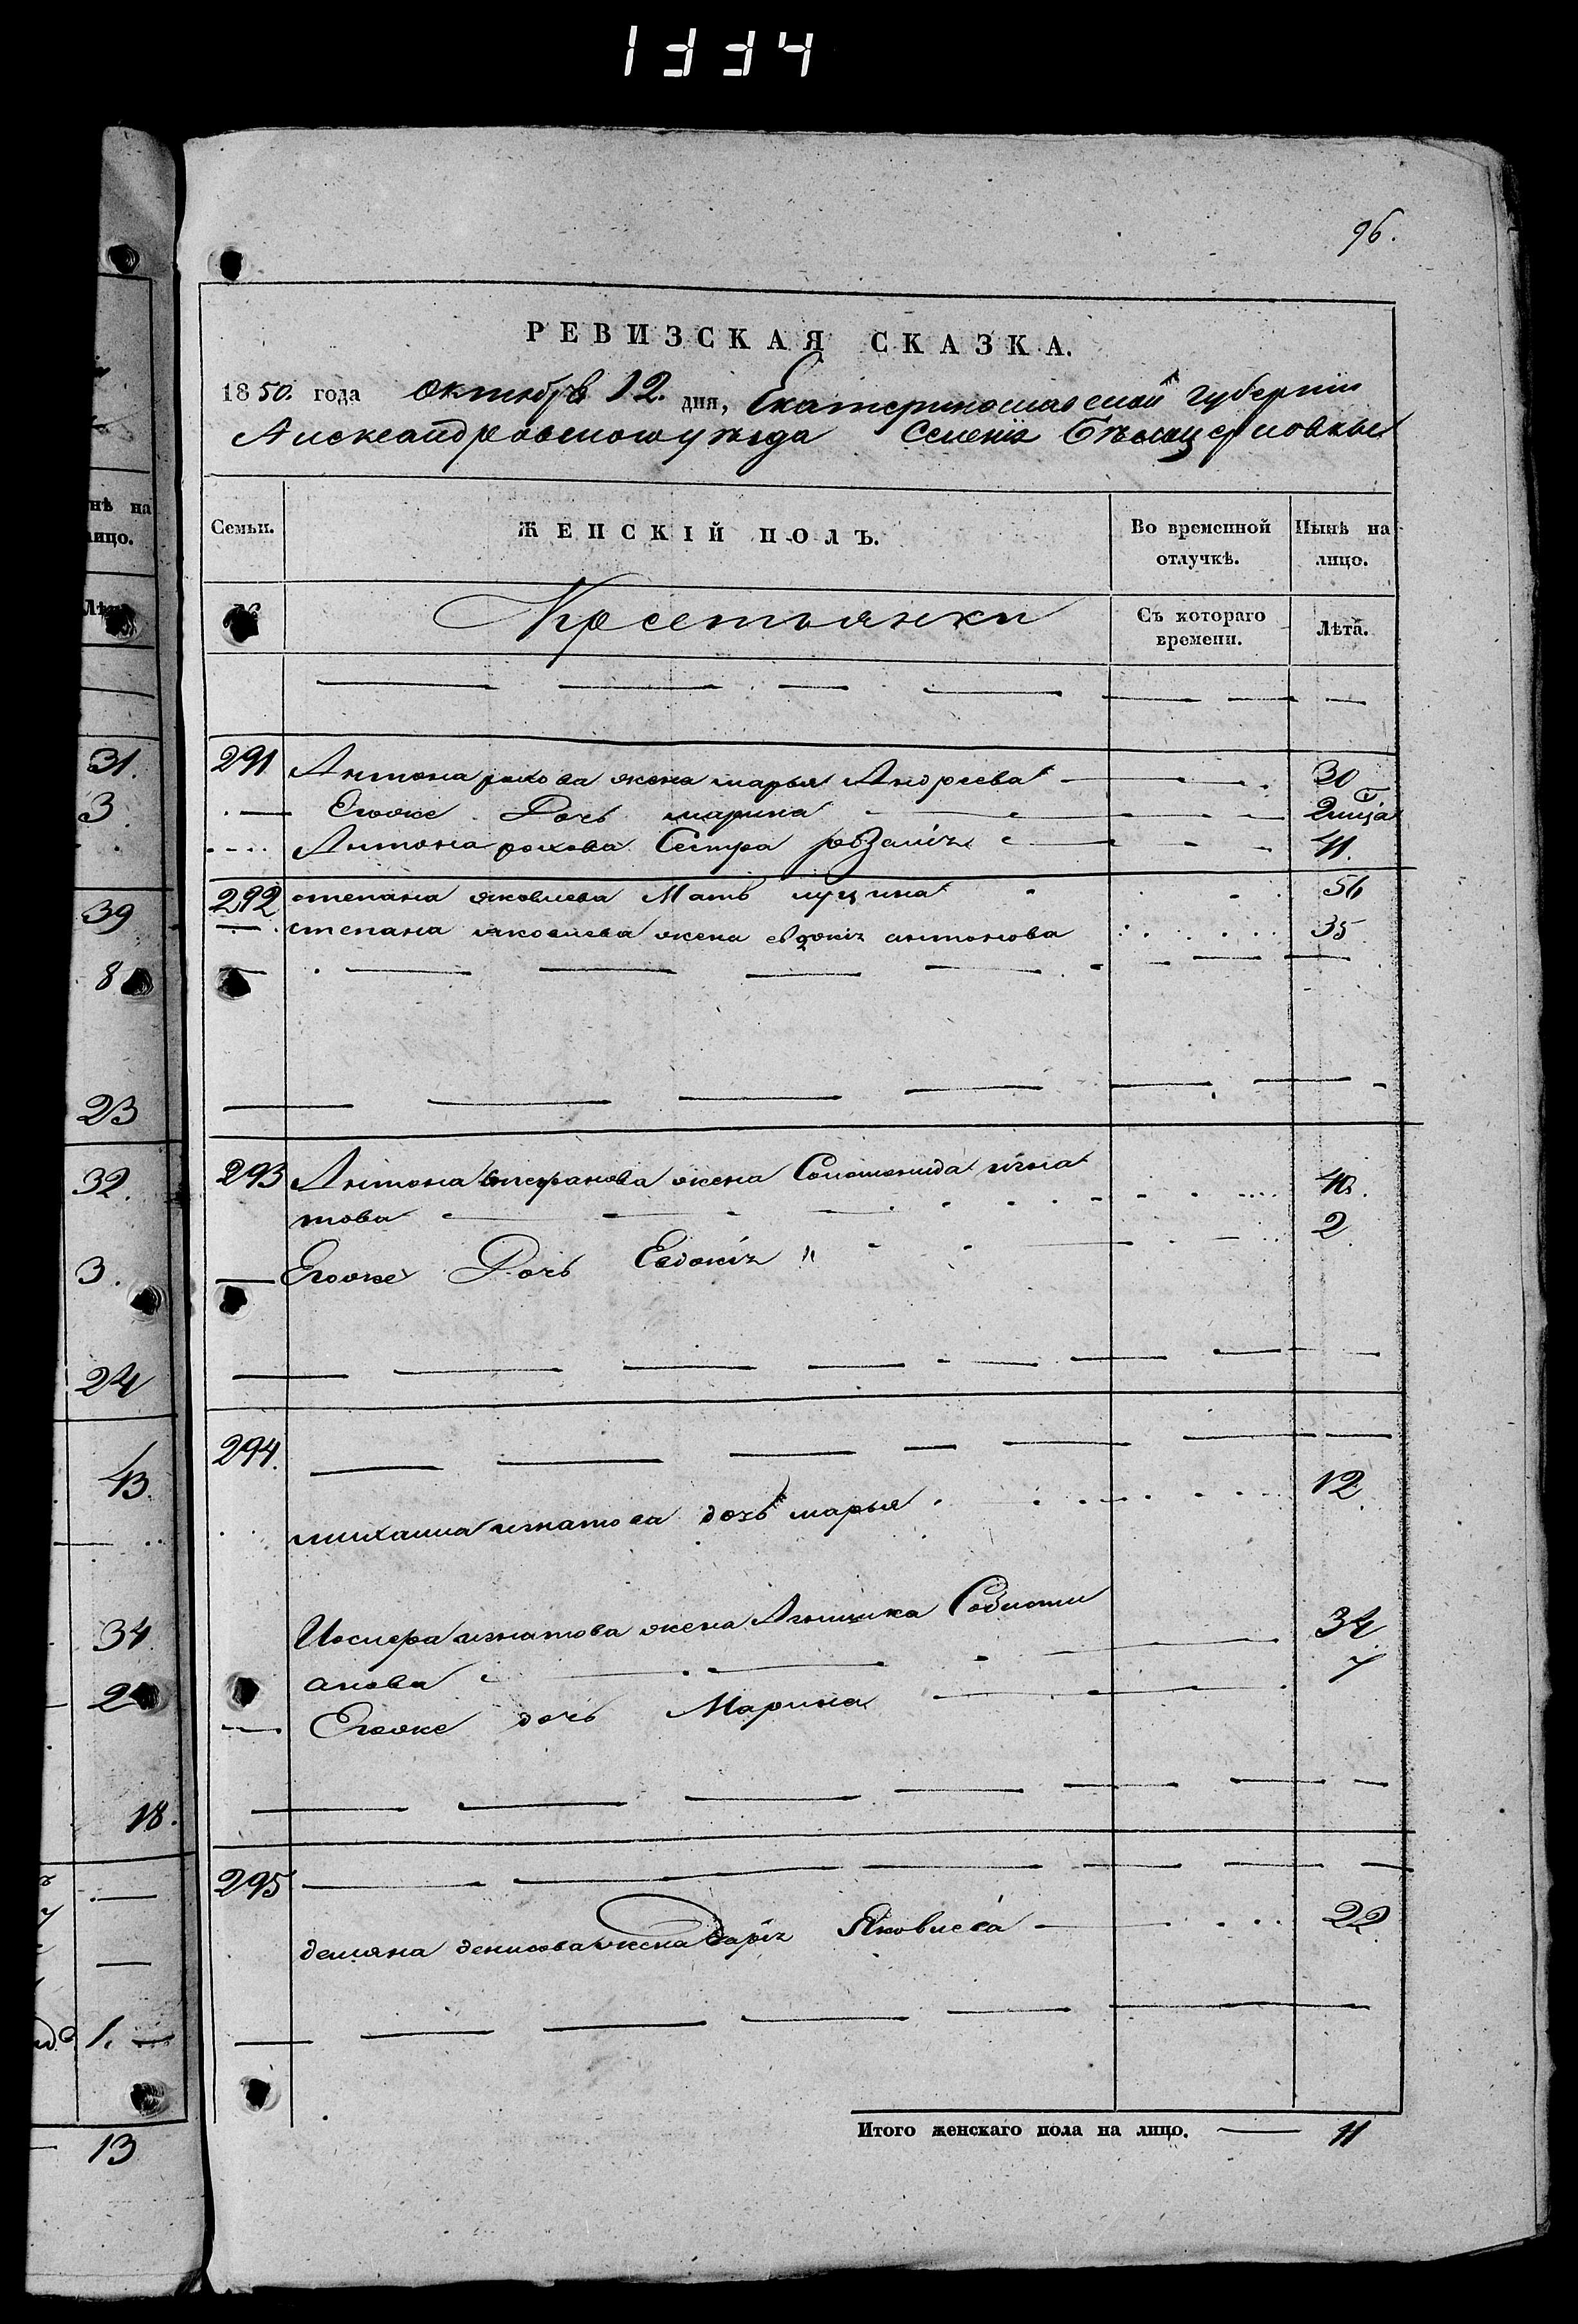 1334
96.
РЕВИЗСКАЯ СКАЗКА.
1850. года октября 12. дня, Екатеринославской губернии
Александровского уезда Селенія Бѣлоцерковки
Семьи.
ЖЕНСКІЙ ПОЛЪ.
Во временной отлучкѣ.
Нынѣ на лицо.
№
Крестьянки
Съ котораго времени.
Лѣта.
291 Антона рохова жена марья Андреева 30
Егоже Дочь марина 2 мца
Антона рохова Сестра розалія 11.
292 степана яковлева Мать луцина 56
степана яковлева жена евдокія антонова 35
293 Антона жена Соломонида игна
това 40.
Егоже Дочь Евдокія 2
294.
михаила игнатова дочь марья 12
Иосифа игнатова жена Агипика Совости
анова 34
Егоже дочь Марина 7
295
демяна денисова жена дарія Яковлева 22
Итого женскаго пола на лицо. 11
нѣ на
лицо.
Лѣта
31.
3
39
8
23
32.
3.
24
43.
34
2
18.
1.
13